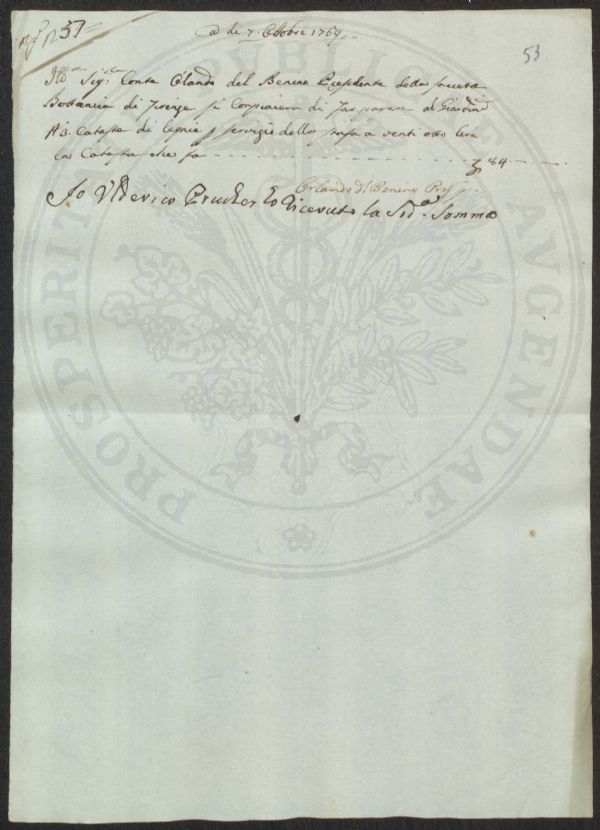 N 37
53
a di 7 Ottobre 1769
Ill.mo Sig.re Conte Orlando del Benino Presidente della società
Bottanica di Firenze si Compiacera di far pagare al Giardino
N 3. Cataste di legnie p servigio della stufa a venti otto lira
la Catasta che fa 84
Orlando del Benino Pres
Io Vlderico Prucher ho Ricevuto la Sud.a Somma
PROSPERITATI PVBLICAE AVGENDAE